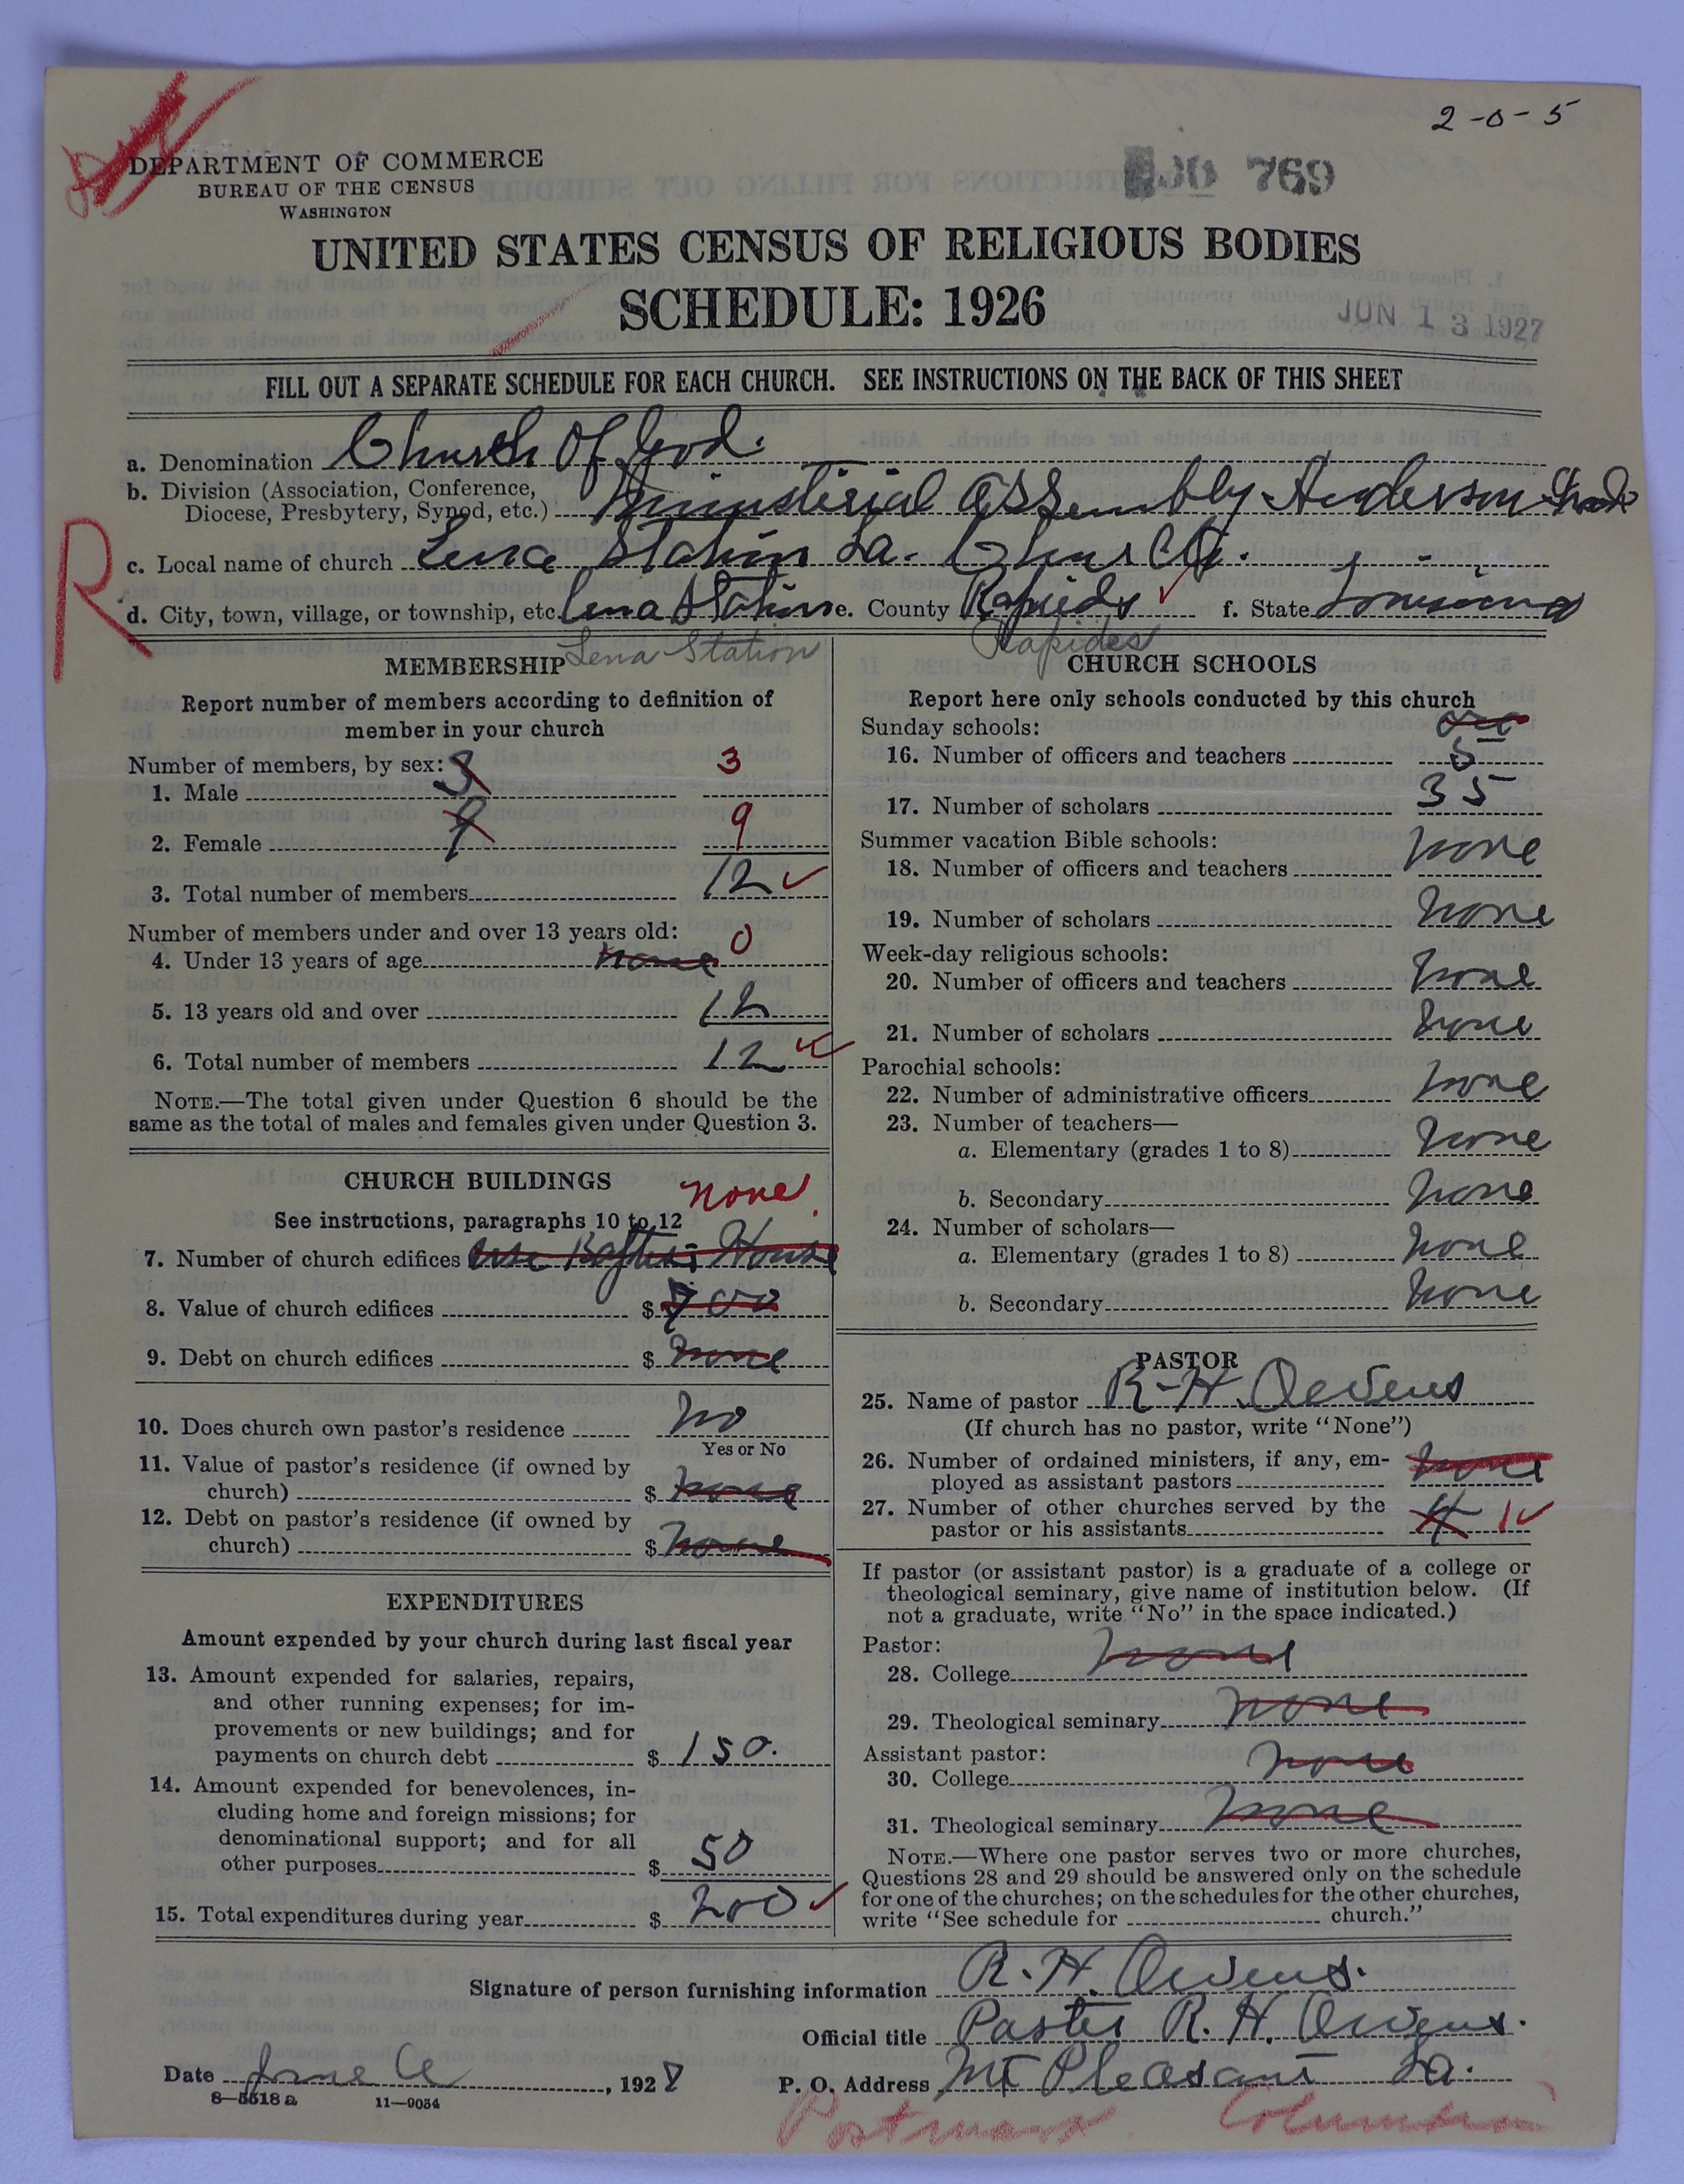 2-0-5
DEPARTMENT OF COMMERCE
BUREAU OF THE CENSUS
WASHINGTON
769
UNITED STATES CENSUS OF RELIGIOUS BODIES
SCHEDULE: 1926
JUN 13 1927
FILL OUT A SEPARATE SCHEDULE FOR EACH CHURCH. SEE INSTRUCTIONS ON THE BACK OF THIS SHEET
a. Denomination Church Of God.
b. Division (Association, Conference,
Diocese, Presbytery, Synod, etc.) Ministerial Assembly Anderson
R
c. Local name of church Lena Station La. Church.
d. City, town, village, or township, etc. Lena Station e. County Rapieds f. State Louisiana
Lena Station Rapides
MEMBERSHIP
Report number of members according to definition of
member in your church
Number of members, by sex:
1. Male 3 3
2. Female 9 9
3. Total number of members 12
Number of members under and over 13 years old:
4. Under 13 years of age none 0
5. 13 years old and over 12
6. Total number of members 12
NOTE.—The total given under Question 6 should be the
same as the total of males and females given under Question 3.
CHURCH BUILDINGS
none
See instructions, paragraphs 10 to 12
7. Number of church edifices use Baptist House
8. Value of church edifices $ 700
9. Debt on church edifices $ none
10. Does church own pastor's residence no
Yes or No
11. Value of pastor's residence (if owned by
church) $ none
12. Debt on pastor's residence (if owned by
church) $ none
EXPENDITURES
Amount expended by your church during last fiscal year
13. Amount expended for salaries, repairs,
and other running expenses; for im-
provements or new buildings; and for
payments on church debt $ 150.
14. Amount expended for benevolences, in-
cluding home and foreign missions; for
denominational support; and for all
other purposes $ 50
15. Total expenditures during year $ 200
CHURCH SCHOOLS
Report here only schools conducted by this church
Sunday schools:
16. Number of officers and teachers 5
17. Number of scholars 35
Summer vacation Bible schools:
18. Number of officers and teachers none
19. Number of scholars none
Week-day religious schools:
20. Number of officers and teachers none
21. Number of scholars none
Parochial schools:
22. Number of administrative officers none
23. Number of teachers—
a. Elementary (grades 1 to 8) none
b. Secondary none
24. Number of scholars—
a. Elementary (grades 1 to 8) none
b. Secondary none
PASTOR
25. Name of pastor R-H. Owens
(If church has no pastor, write "None")
26. Number of ordained ministers, if any, em-
ployed as assistant pastors none
27. Number of other churches served by the
pastor or his assistants 4 1
If pastor (or assistant pastor) is a graduate of a college or
theological seminary, give name of institution below. (If
not a graduate, write "No" in the space indicated.)
Pastor:
28. College none
29. Theological seminary none
Assistant pastor:
30. College none
31. Theological seminary none
NOTE.—Where one pastor serves two or more churches,
Questions 28 and 29 should be answered only on the schedule
for one of the churches; on the schedules for the other churches,
write "See schedule for church."
Signature of person furnishing information R. H. Owens.
Official title Paster R. H. Owens.
Date June , 192
P. O. Address Mt Pleasant La.
8-5518 a 11-9034
Postmark Columbia